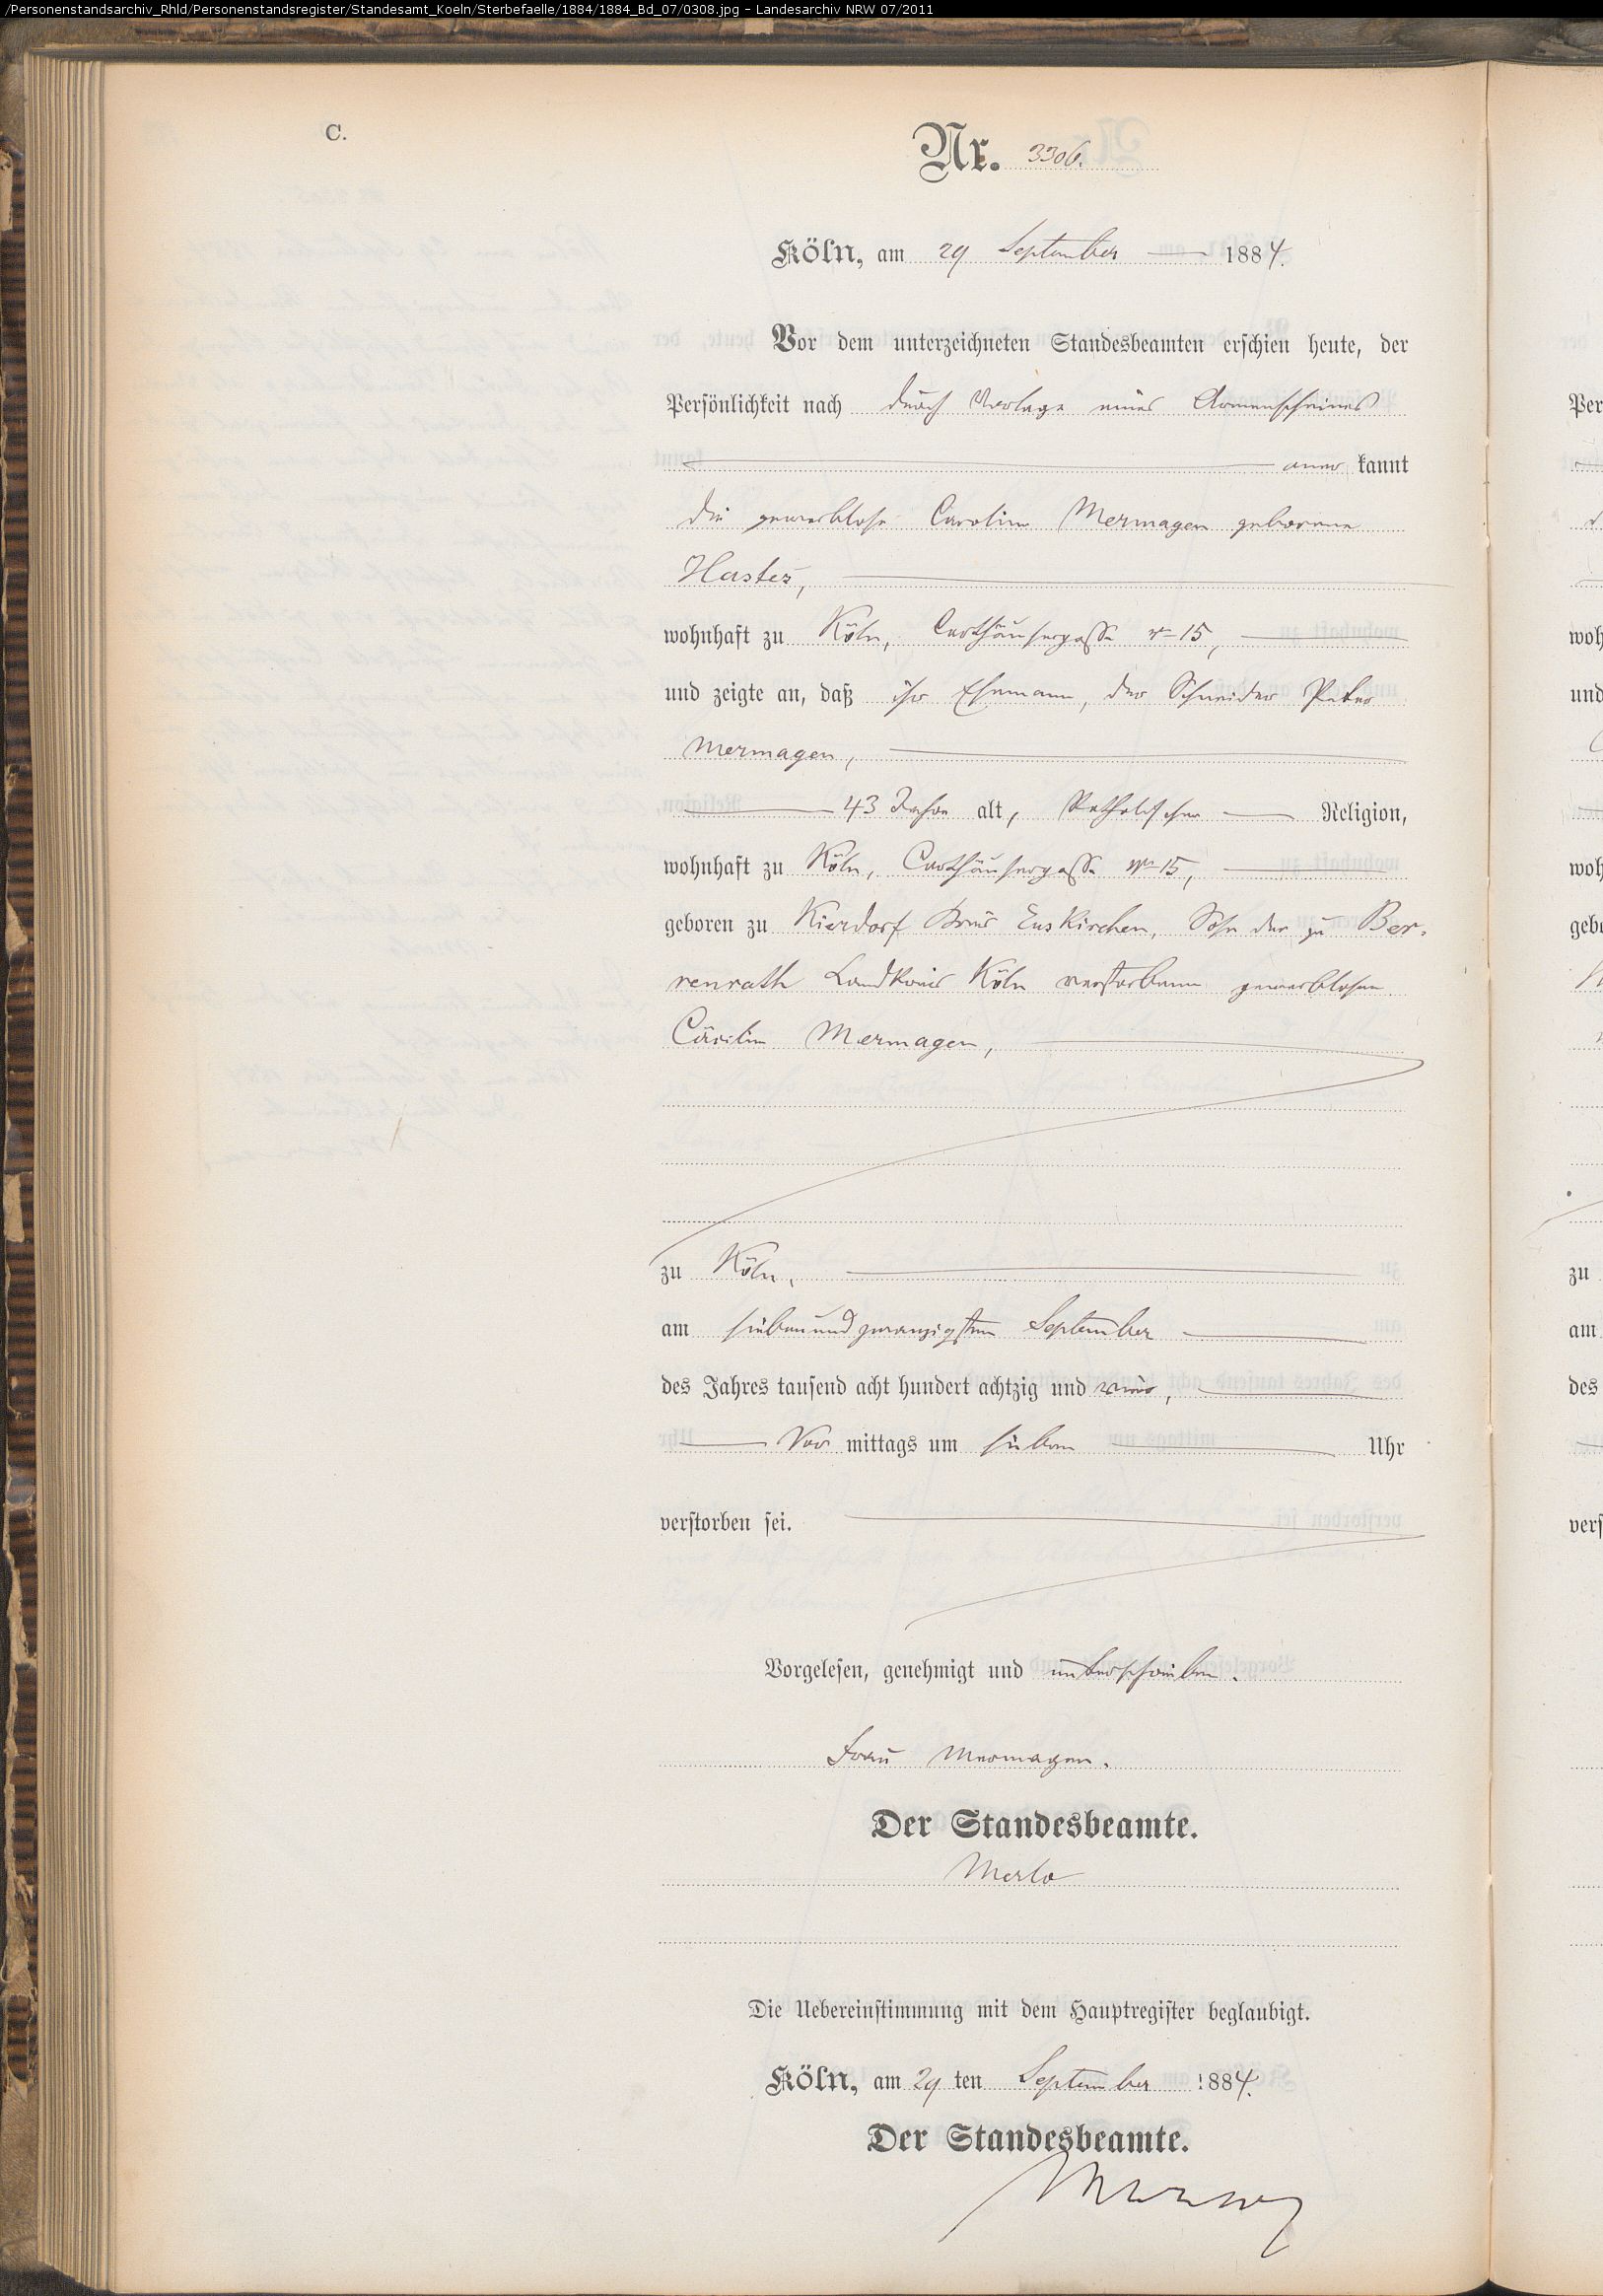 /Personenstandsarchiv_Rhld/Personenstandsregister/Standesamt_Koeln/Sterbefaelle/1884/1884_Bd_07/0308.jpg - Landesarchiv NRW 07/2011
C.
Nr. 3306.
Köln, am 29 September 1884.
Vor dem unterzeichneten Standesbeamten erschien heute, der
Persönlichkeit nach durch Vorlage eines Armenscheines
aner kannt
die gewerblose Caroline Mermagen geborene
Haster,
wohnhaft zu Köln, Carthäusergasse No 15,
und zeigte an, daß ihr Ehemann, der Schneider Peter
Mermagen,
43 Jahre alt, katholischer Religion,
wohnhaft zu Köln, Carthäusergasse No 15,
geboren zu Kierdorf Kreis Euskirchen, Sohn der zu Ber-
renrath Landkreis Köln verstorbenen gewerblosen
Cäcilia Mermagen,
zu Köln,
am siebenundzwanzigsten September
des Jahres tausend acht hundert achtzig und vier,
Vor mittags um sieben Uhr
verstorben sei.
Vorgelesen, genehmigt und unterschrieben.
Frau Mermagen.
Der Standesbeamte.
Merlo
Die Uebereinstimmung mit dem Hauptregister beglaubigt.
Köln, am 29 ten September 1884.
Der Standesbeamte.
Per
woh
und
woh
geb
zu
am
des
vers